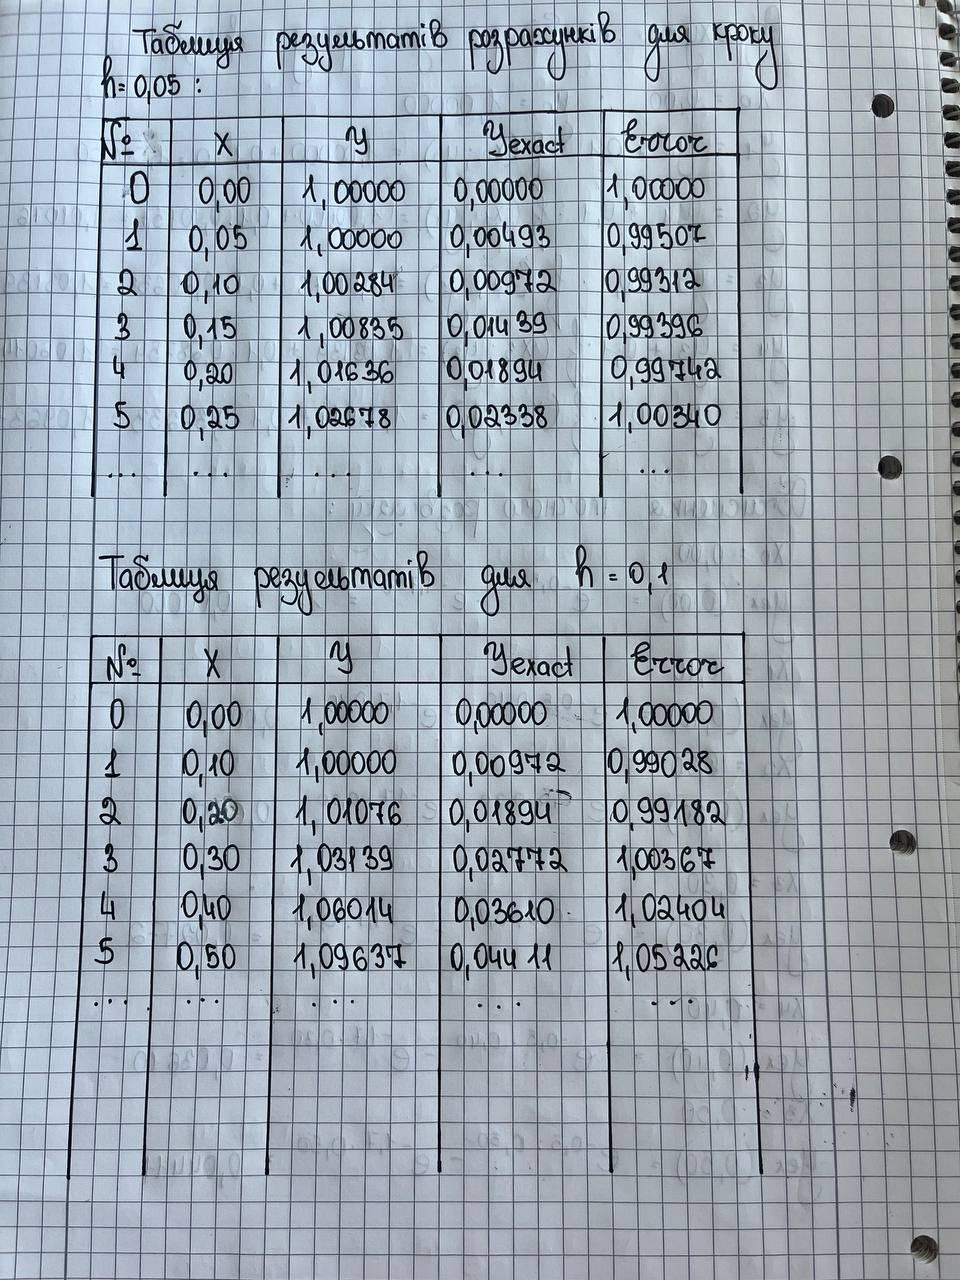 Таблиця результатів розрахунків для кроку
h = 0,05 :
№ X Y Yexact Error
0 0,00 1,00000 0,00000 1,00000
1 0,05 1,00000 0,00493 0,99507
2 0,10 1,00284 0,00972 0,99312
3 0,15 1,00835 0,01439 0,99396
4 0,20 1,01636 0,01894 0,99742
5 0,25 1,02678 0,02338 1,00340
... ... ... ... ...
Таблиця результатів для h = 0,1
№ X Y Yexact Error
0 0,00 1,00000 0,00000 1,00000
1 0,10 1,00000 0,00972 0,99028
2 0,20 1,01076 0,01894 0,99182
3 0,30 1,03139 0,02772 1,00367
4 0,40 1,06014 0,03610 1,02404
5 0,50 1,09637 0,04411 1,05226
... ... ... ... ...